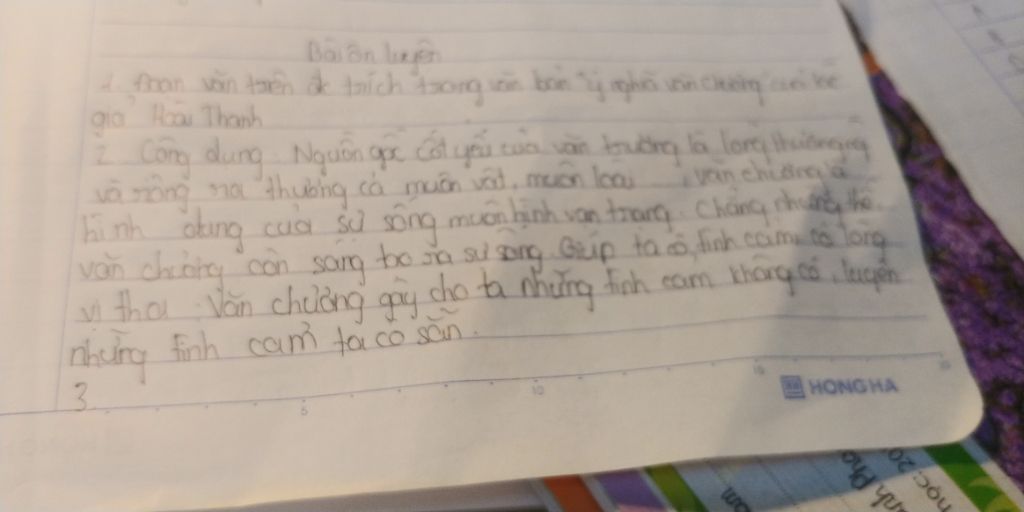 Bài ôn luyện
1. Đoạn văn trên đc trích trong văn bản "ý nghĩa văn chương" của tác
giả Hoài Thanh
2. Công dụng. Nguồn gốc cốt yếu của văn trường là lòng thương
và rộng ra thương cả muôn vật, muôn loài, văn chương là
hình dung của sự sống muôn hình vạn trạng. Chẳng những thế
văn chương còn sáng tạo ra sự sống. Giúp ta có tình cảm, có lòng
vị tha. Văn chương gây cho ta những tình cảm không có, luyện
những tình cảm ta có sẵn.
3.
5 10 15
HONG HA
học: 20